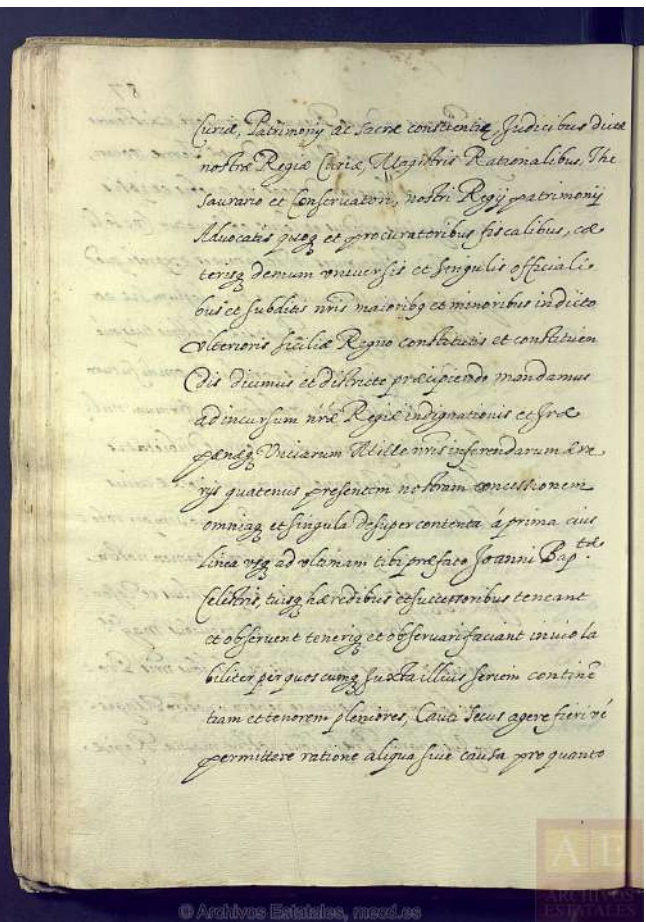 Curiæ, Patrimonÿ ac sacræ conscientiæ, Judicibus dictæ
nostræ Regiæ Curiæ, Magistris Rationalibus, The
saurario et Conservatori, nostri Regÿ patrimonÿ
Advocatis quoqȝ et procuratoribus fiscalibus, cæ
terisqȝ demum vniuersis et singulis officiali-
bus et subditis nr̃is maioribqȝ et minoribus in dicto
vlterioris siciliæ Regno constitutis et constituen
dis dicimus et districte præcipiendo mandamus
ad incursum nr̃æ Regiæ indignationis et iræ
pænæqȝ Vnciarum Mille nr̃is inferendarum ære
rÿs quatenus presentem nostram concessionem
omniaqȝ et singula desuper contenta á prima eius
linea vsqȝ ad vltimam tibi præfato Joanni Bapᵗᵃᵉ.
Celestris, tuisqȝ hæredibus et successoribus teneant
et observent teneriqȝ et observari faciant inviola
biliter per quoscumqȝ Juxta illius seriem continẽ
tiam et tenorem pleniores, Cauti secus agere fieri vé
permittere ratione aliqua siue causa pro quanto
AE
ARCHIVOS
ESTATALES
© Archivos Estatales, mecd.es